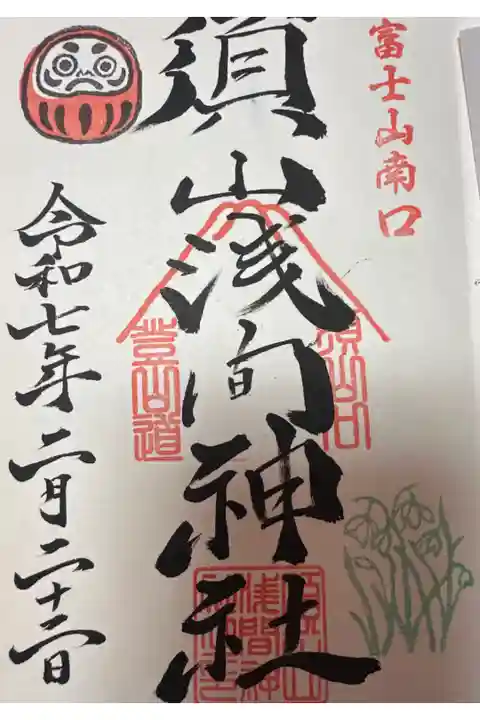 富士山南口
須山浅間神社
須山口
登山道
令和七年二月二十二日